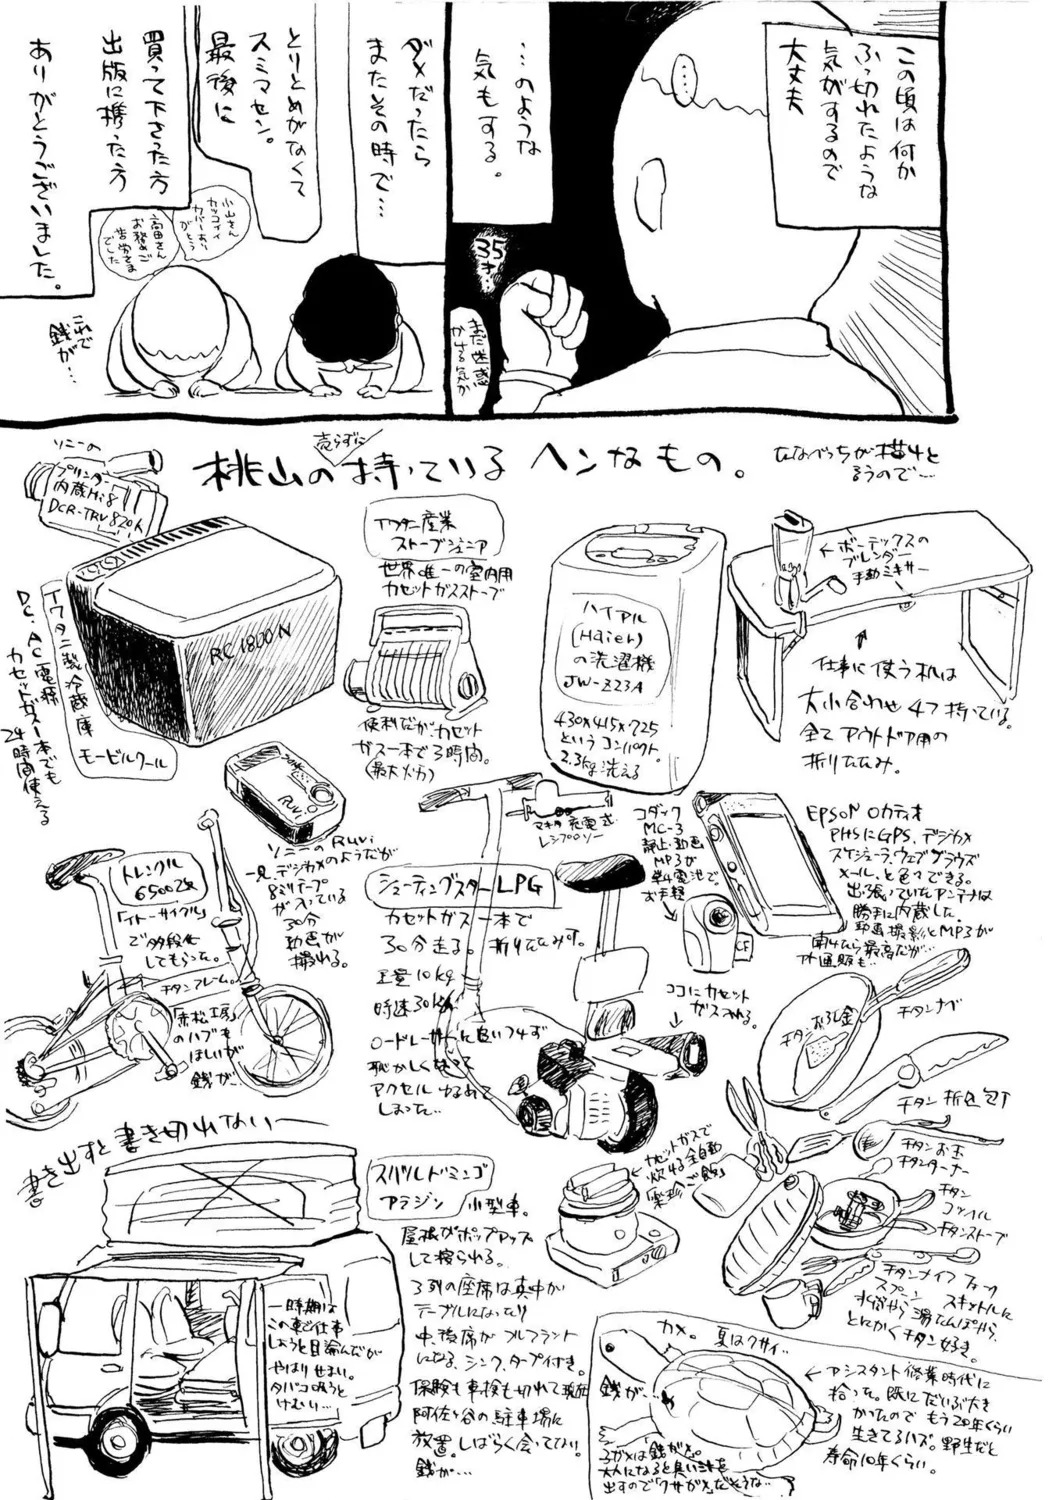 この頃は何か
ふっ切れたような
気がするので
大丈夫
…のような
気もする。
35
才…
まだ迷惑
かける気か
ダメだったら
またその時で…
とりとめがなくて
スミマセン。
最後に
買って下さった方
出版に携った方
ありがとうございました。
小山さん
カッコイイ
カバーあり
がとう
高田さん
お務めご
苦労さま
でした
これで
銭が…
桃山の持っているヘンなもの。
売らずに
ソニーの
プリンター
内蔵Hi8
DCR-TRV820K
イワタニ製冷蔵庫
モービルクール
DC、AC電源
カセットガス1本でも
24時間使える
RC1800N
イワタニ産業
ストーブジュニア
世界唯一の室内用
カセットガスストーブ
便利だが、カセット
ガス一本で3時間。
(最大火力)
ハイアル
(Haier)
の洗濯機
JW-Z23A
430×415×725
というコンパクト
2.3kg洗える
←ボーデックスの
ブレンダー
手動ミキサー
仕事に使う机は
大小合わせ4つ持っている。
全てアウトドア用の
折りたたみ。
ソニーのRuvi
一見、デジカメのようだが
8ミリテープ
が入っている
30分
動画が
撮れる。
トレンクル
6500改
「イトーサイクル」
で多段化
してもらった。
チタンフレーム。
「赤松工房」
のハブも
ほしいが
銭が…
シューティングスターLPG
カセットガス一本で
30分走る。折りたたみ可。
重量10kg
時速30km
ロードレーサーに追いつけず
恥かしくなって
アクセルゆるめて
しまった…
マキタ充電式
レシプロソー
コダック
MC-3
静止、動画
MP3が
単4電池で
お手軽
CF
ココにカセット
ガス入れる。
EPSON ロカティオ
PHSにGPS、デジカメ
スケジューラ、ウェブブラウズ
メール、と色々できる。
出っ張っていたアンテナは
勝手に内蔵した。
動画撮影とMP3が
チタンナベ
チタンおろし金
チタン折包丁
チタンお玉
チタンターナー
チタン
チタンストーブ
チタンナイフ フォーク
スプーン
スキットルに
水筒から湯たんぽから、
とにかくチタン好き。
カセットガスで
炊ける全自動
書き出すと書き切れないー
スバルドミンゴ
アラジン 小型車。
屋根がポップアップ
して寝られる。
3列の座席は真中が
テーブルになったり
中、後席がフルフラント
になる、シンク、タープ付き。
保険も車検も切れて現在
阿佐ヶ谷の駐車場に
放置。しばらく会ってない。
銭が…
一時期は
この車で仕事
しようと目論んだが
やはりせまい。
タバコ吸うと
けむい…
カメ。夏はクサイ…
銭が…
←アシスタント修業時代に
拾った。既にだいぶ大き
かったのでもう20年くらい
生きてるハズ。野生だと
寿命10年くらい。